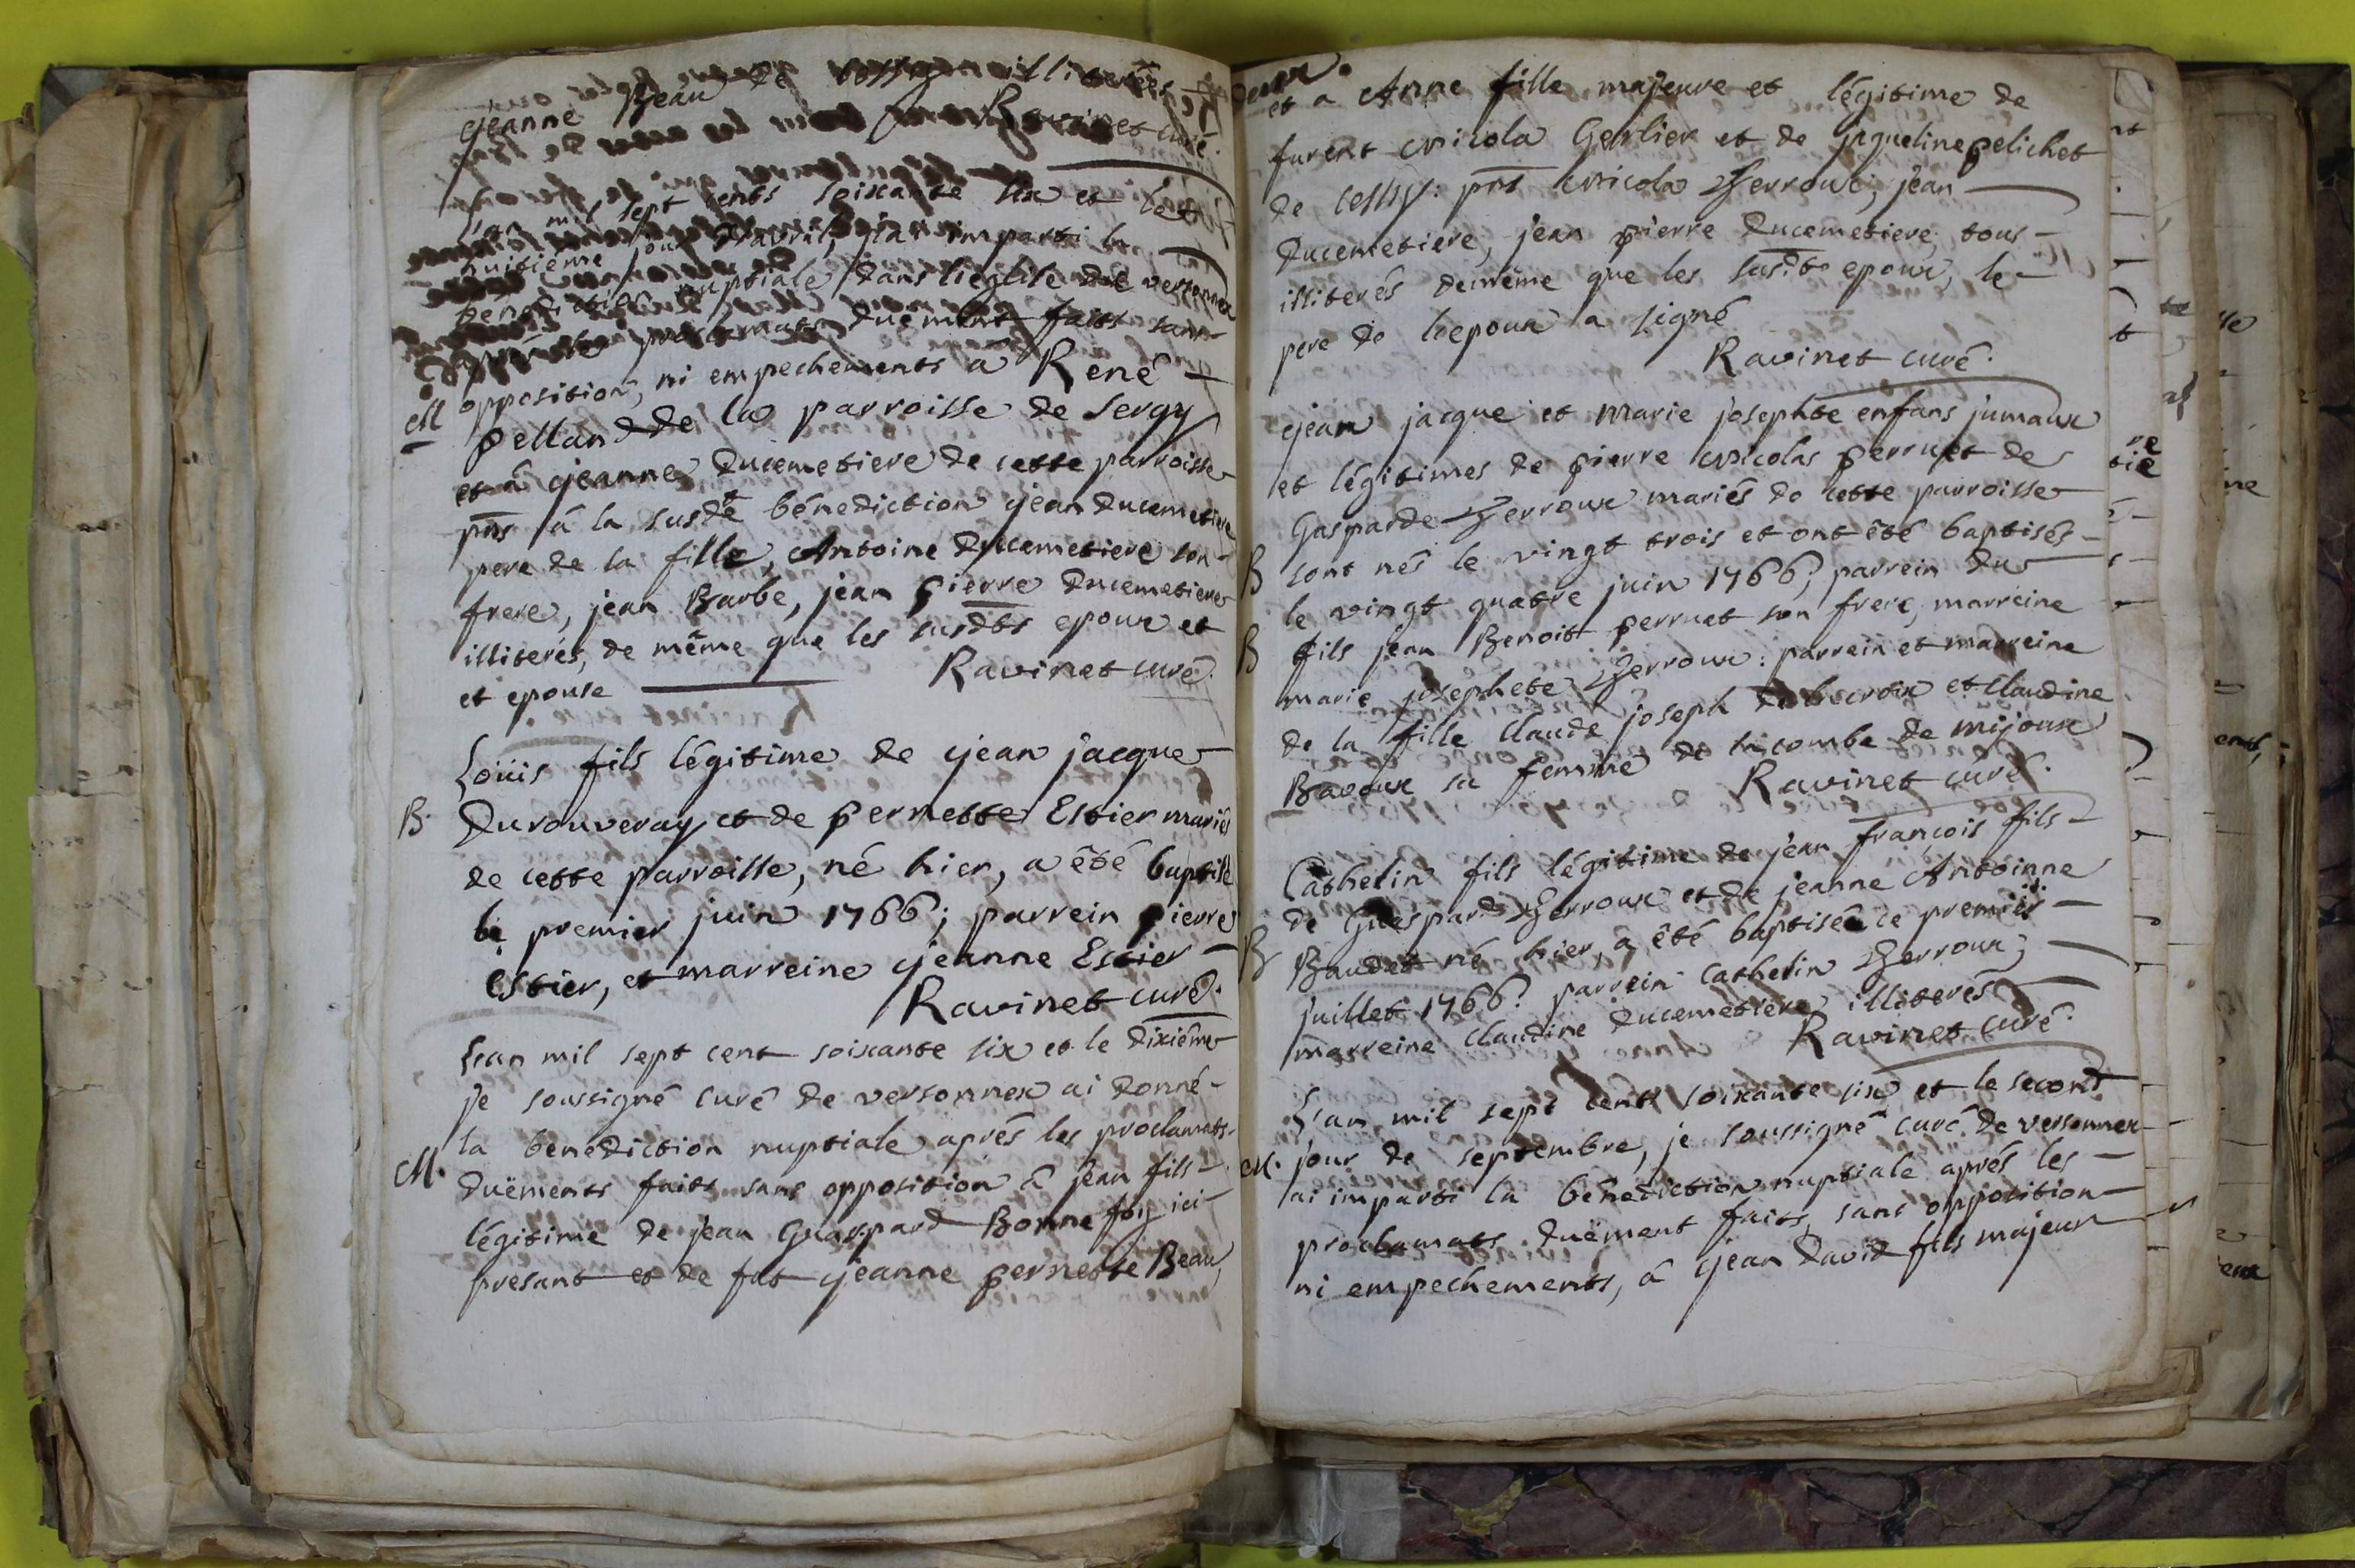 jeanne Beau de cessy illiterés
Ravinet curé.
L'an mil sept cents soixante six et le
huitiéme jour d'avril, j'ai imparti la
bénédiction nuptiale dans l'eglise de versonnex
aprés les proclamats duëment faits sans
opposition, ni empechements a René
M
pelland de la parroisse de sergy
et a jeanne Ducemetiere de cette parroisse
pñs á la susdte bénediction jean ducemetiere
pere de la fille, Antoine Ducemetiere son
frere, jean Barbe, jean pierre Ducemetiere
illiterés, de même que les susdts epoux et
et epouse Ravinet curé.
Loüis fils légitime de jean jacque
B. Durouveray et de pernette Estier mariés
de cette parroisse, né hier, a êté baptisé
le premier juin 1766; parrein pierre
Estier, et marreine jeanne Estier
Ravinet curé.
L'an mil sept cent soixante six et le dixiéme
je soussigné curé de versonnex ai donné
la benediction nuptiale aprés les proclamats
M. duëments faits sans opposition á jean fils
légitime de jean Guaspard Bonnefoy ici
presant et de fut jeanne pernette Beau,
et a Anne fille majeure et légitime de
furent nicola Gerlier et de jaqueline pelichet
de cessy: pñs nicola Perroux, jean
Ducemetiere, jean pierre Ducemetiere, tous
illiterés demême que les susdts epoux, le
pere de l'epoux a signé
Ravinet curé.
jean jacque et marie josephte enfans jumaux
et légitimes de pierre nicolas perruet de
Gasparde Perroux mariés de cette parroisse
B sont nés le vingt trois et ont êté baptisés
le vingt quatre juin 1766; parrein du
B fils jean Benoit perruet son frere, marreine
marie josephete Perroux: parrein et marreine
de la fille claude joseph delacroix et claudine
Bavoux sa femme de la combe de mijoux
Ravinet curé.
Cathelin fils légitime de jean françois fils
de Guaspard Perroux et de jeanne Antoinne
B Baudet né hier, a êté baptisé ce premier
juillet 1766: parrein Cathelin Perroux;
marreine claudine Ducemetiere illiterés
Ravinet curé.
L'an mil sept cents soixante six et le second
M. jour de septembre, je soussigné curé de versonnex
ai imparti la bénediction nuptiale aprés les
proclamats duëment faits, sans opposition
ni empechements, á jean David fils majeur